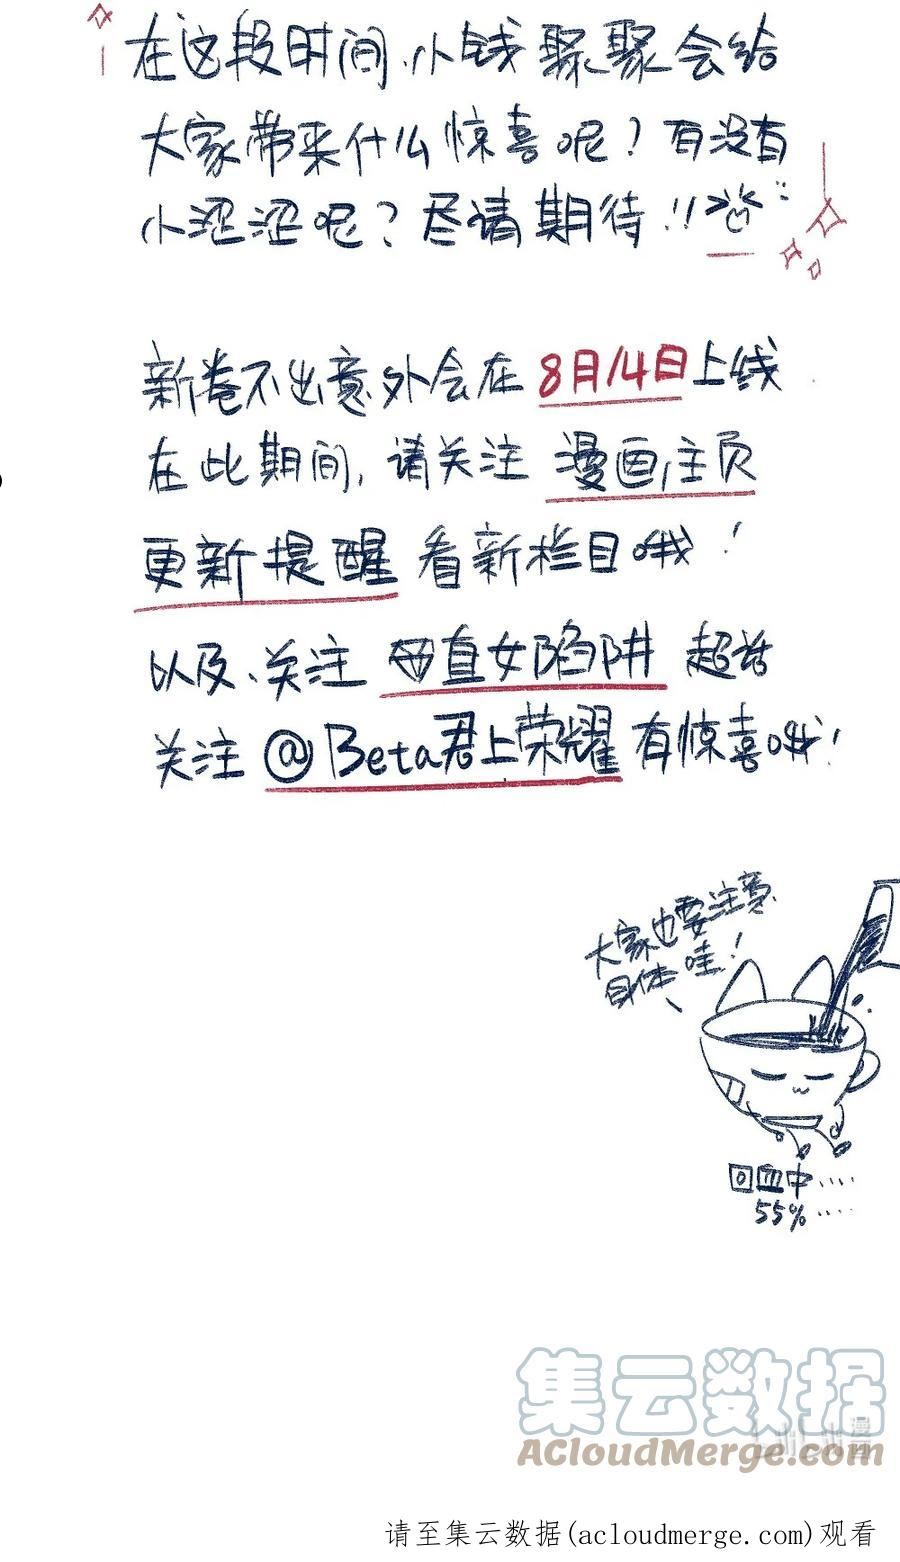 在这段时间、小钱聚聚会给
大家带来什么惊喜呢？有没有
小涩涩呢？尽请期待!!
新卷不出意外会在8月14日上线
在此期间，请关注 漫画主页
更新提醒 看新栏目哦！
以及、关注 直女陷阱 超话
关注@Beta君上荣耀有惊喜哦！
大家也要注意
身体哇！
回血中....
55%....
集云数据
ACloudMerge.com
请至集云数据(acloudmerge.com)观看